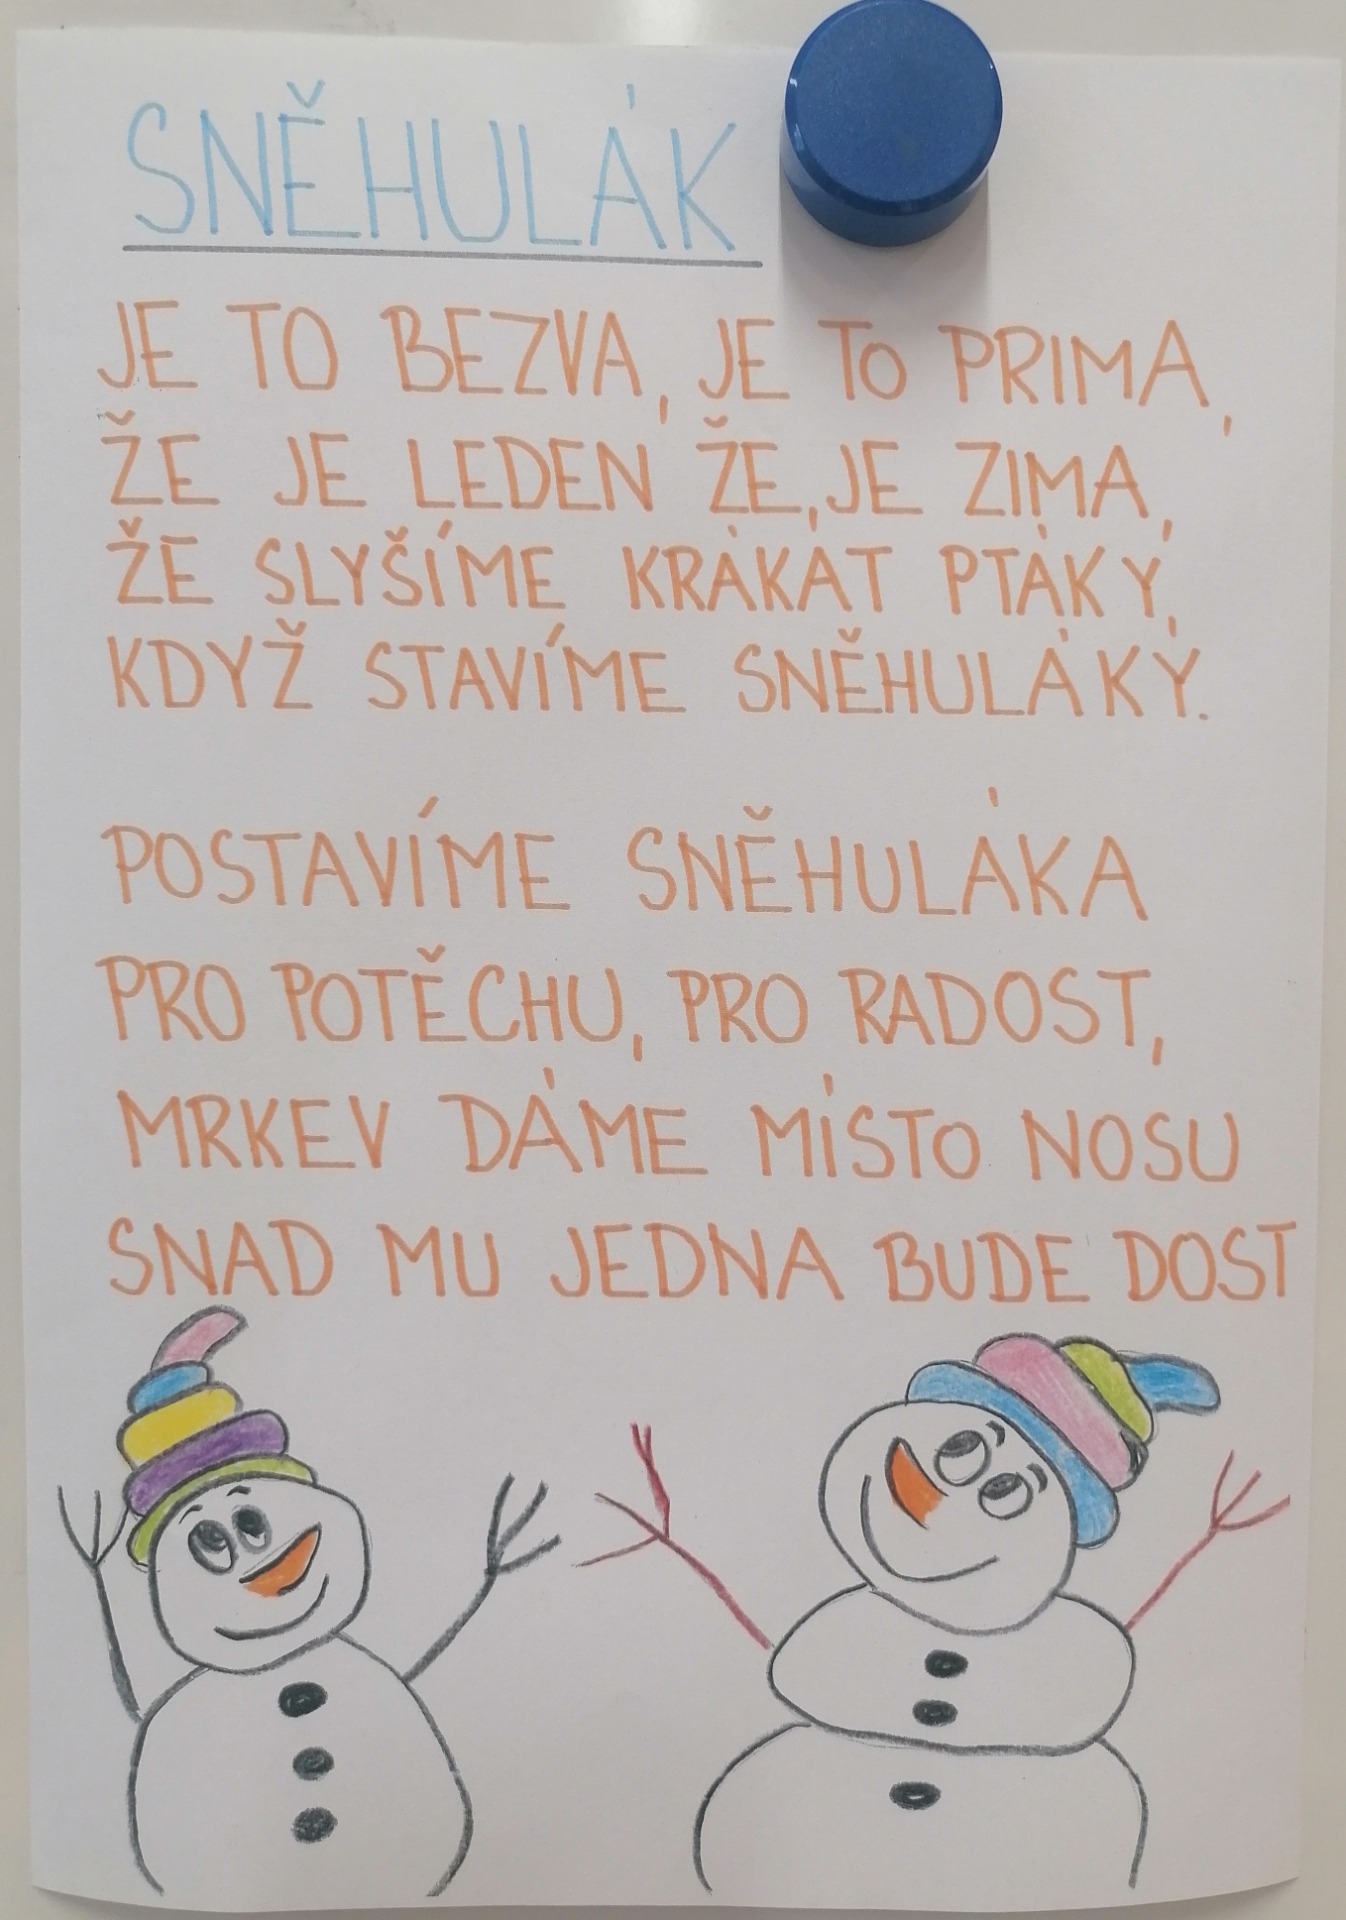 SNĚHULÁK
JE TO BEZVA, JE TO PRIMA,
ŽE JE LEDEN ŽE,JE ZIMA,
ŽE SLYŠÍME KRÁKAT PTÁKY,
KDYŽ STAVÍME SNĚHULÁKY.
POSTAVÍME SNĚHULÁKA
PRO POTĚCHU, PRO RADOST,
MRKEV DÁME MÍSTO NOSU
SNAD MU JEDNA BUDE DOST